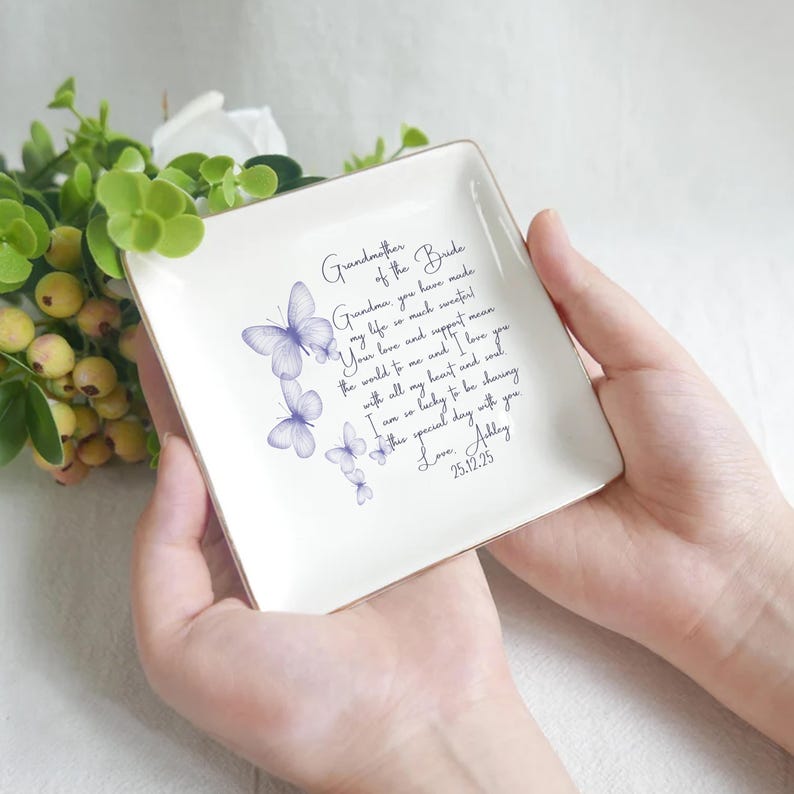 Grandmother
of the Bride
Grandma, you have made
my life so much sweeter!
Your love and support mean
the world to me and I love you
with all my heart and soul.
I am so lucky to be sharing
this special day with you.
Love, Ashley
25.12.25